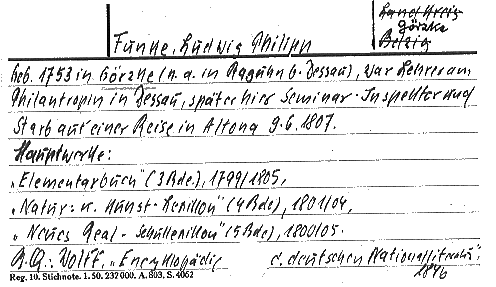 Landkreis
Görzke
Belzig
Funke, Ludwig Philipp
Geb. 1753 in Görzke (n. a. in Raguhn b. Dessau), war Lehrer am
Philantropin in Dessau, später hier Seminar-Inspektor und
starb auf einer Reise in Altona 9.6.1807.
Hauptwerke:
„Elementarbuch" (3 Bde.), 1799/1805,
„Natur- u. Kunst-Lexikon" (4 Bde), 1801/04,
„Neues Real-Schullexikon" (5 Bde), 1800/05.
Wolff, „Encyklopädie d. deutschen Nationalliteratur"
1846
Reg. 10. Stichnote. 1. 50. 232 000. A. 803. S. 4062